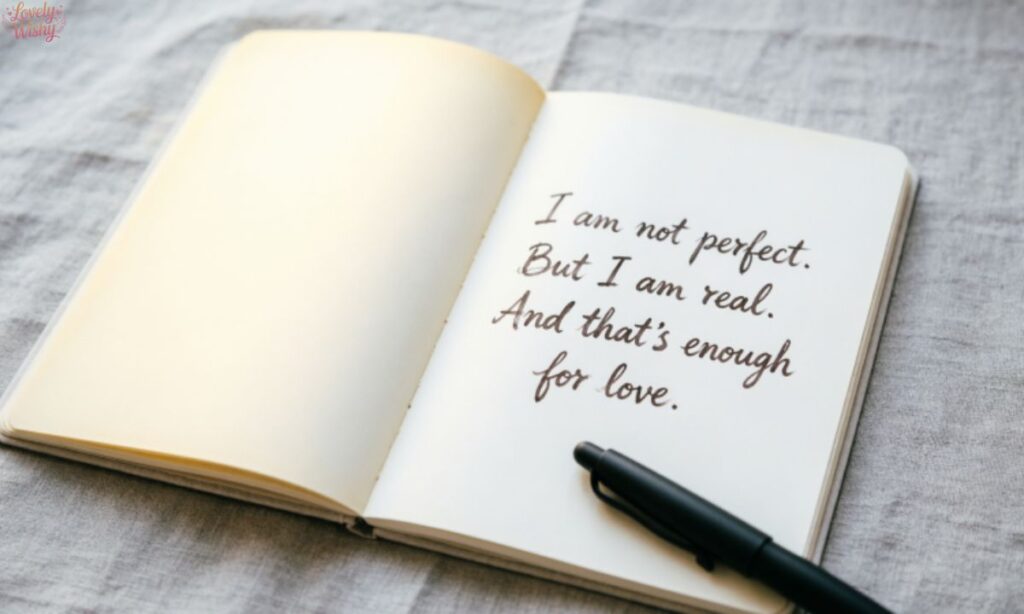 Lovely
Wishy
I am not perfect.
But I am real.
And that's enough
for love.